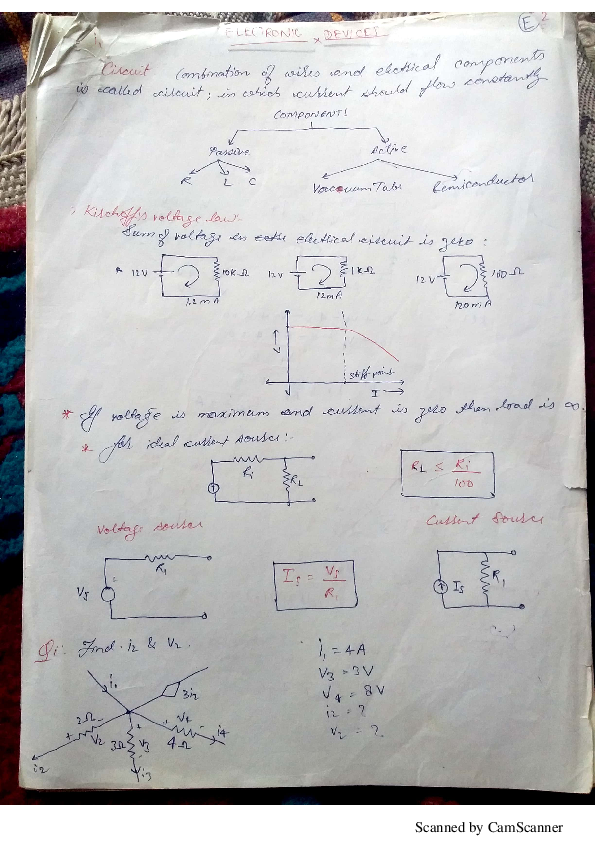 ELECTRONIC DEVICES
E 2
Circuit Combination of wires and electrical components
is called circuit; in which current should flow constantly
COMPONENTS
Passive Active
R L C Vaccuum Tube Semiconductor
Kirchoff's voltage law.
Sum of voltage in electrical circuit is zero:
12V 10KΩ 12V 1KΩ 12V 100Ω
1.2mA 12mA 120mA
stiff point
I
* If voltage is maximum and current is zero then load is ∞.
* for ideal current source:
Ri RL
RL ≤ Ri/100
Voltage source Current Source
VS R1
IS = VS/R1
IS R1
Q1: Find i2 & V2.
i1 = 4A
V3 = 3V
V4 = 8V
i2 = ?
V2 = ?
i1 3i2
2Ω V2 3Ω V3 V4 4Ω i4
i2 i3
Scanned by CamScanner